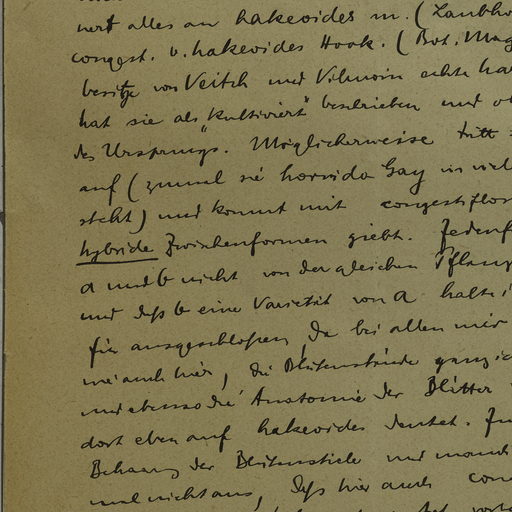 alles an hakeoides m. (Laubh
congest. v. hakeoides Hook. (Bot. Mag
besitze von Veitch und Vilmorin echte ha
hat sie als "kultiviert" beschrieben und
des Ursprungs. Möglicherweise tritt s
auf (zumal sie horrida Gay in viel
steht) und kommt mit congestiflor
hybride Zwischenformen giebt. Jedenf
a und b nicht von der gleichen Pflanz
und daß b eine Varietät von a halte i
für ausgeschlossen, da bei allen mir
wie auch hier, die Blütenstände ganz
und ebenso die Anatomie der Blätter
dort eben auf hakeoides deutet.
Behaarg der Blütenstiele und
mal nicht aus, daß hier auch con